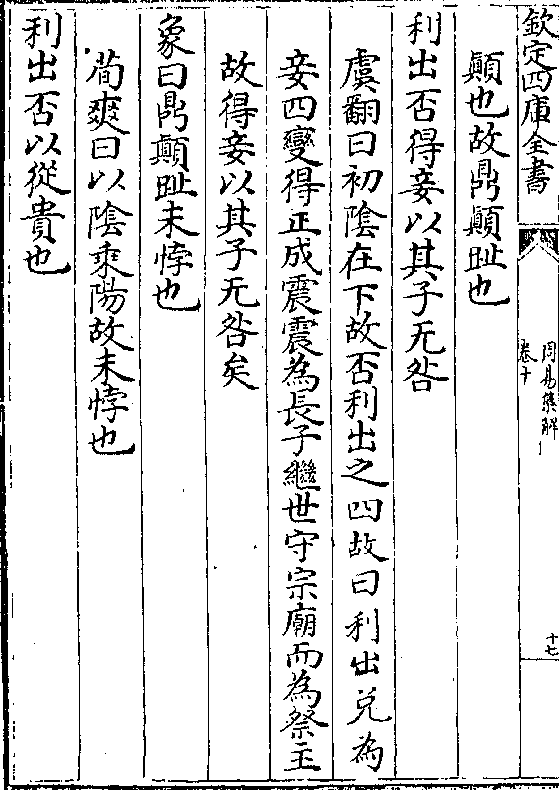 欽定四庫全書
周易集解
卷十
十七
顛也故鼎顛趾也
利出否得妾以其子无咎
虞翻曰初陰在下故否利出之四故曰利出兌為
妾四變得正成震震為長子繼世守宗廟而為祭主
故得妾以其子无咎矣
象曰鼎顛趾未悖也
荀爽曰以陰乘陽故未悖也
利出否以從貴也